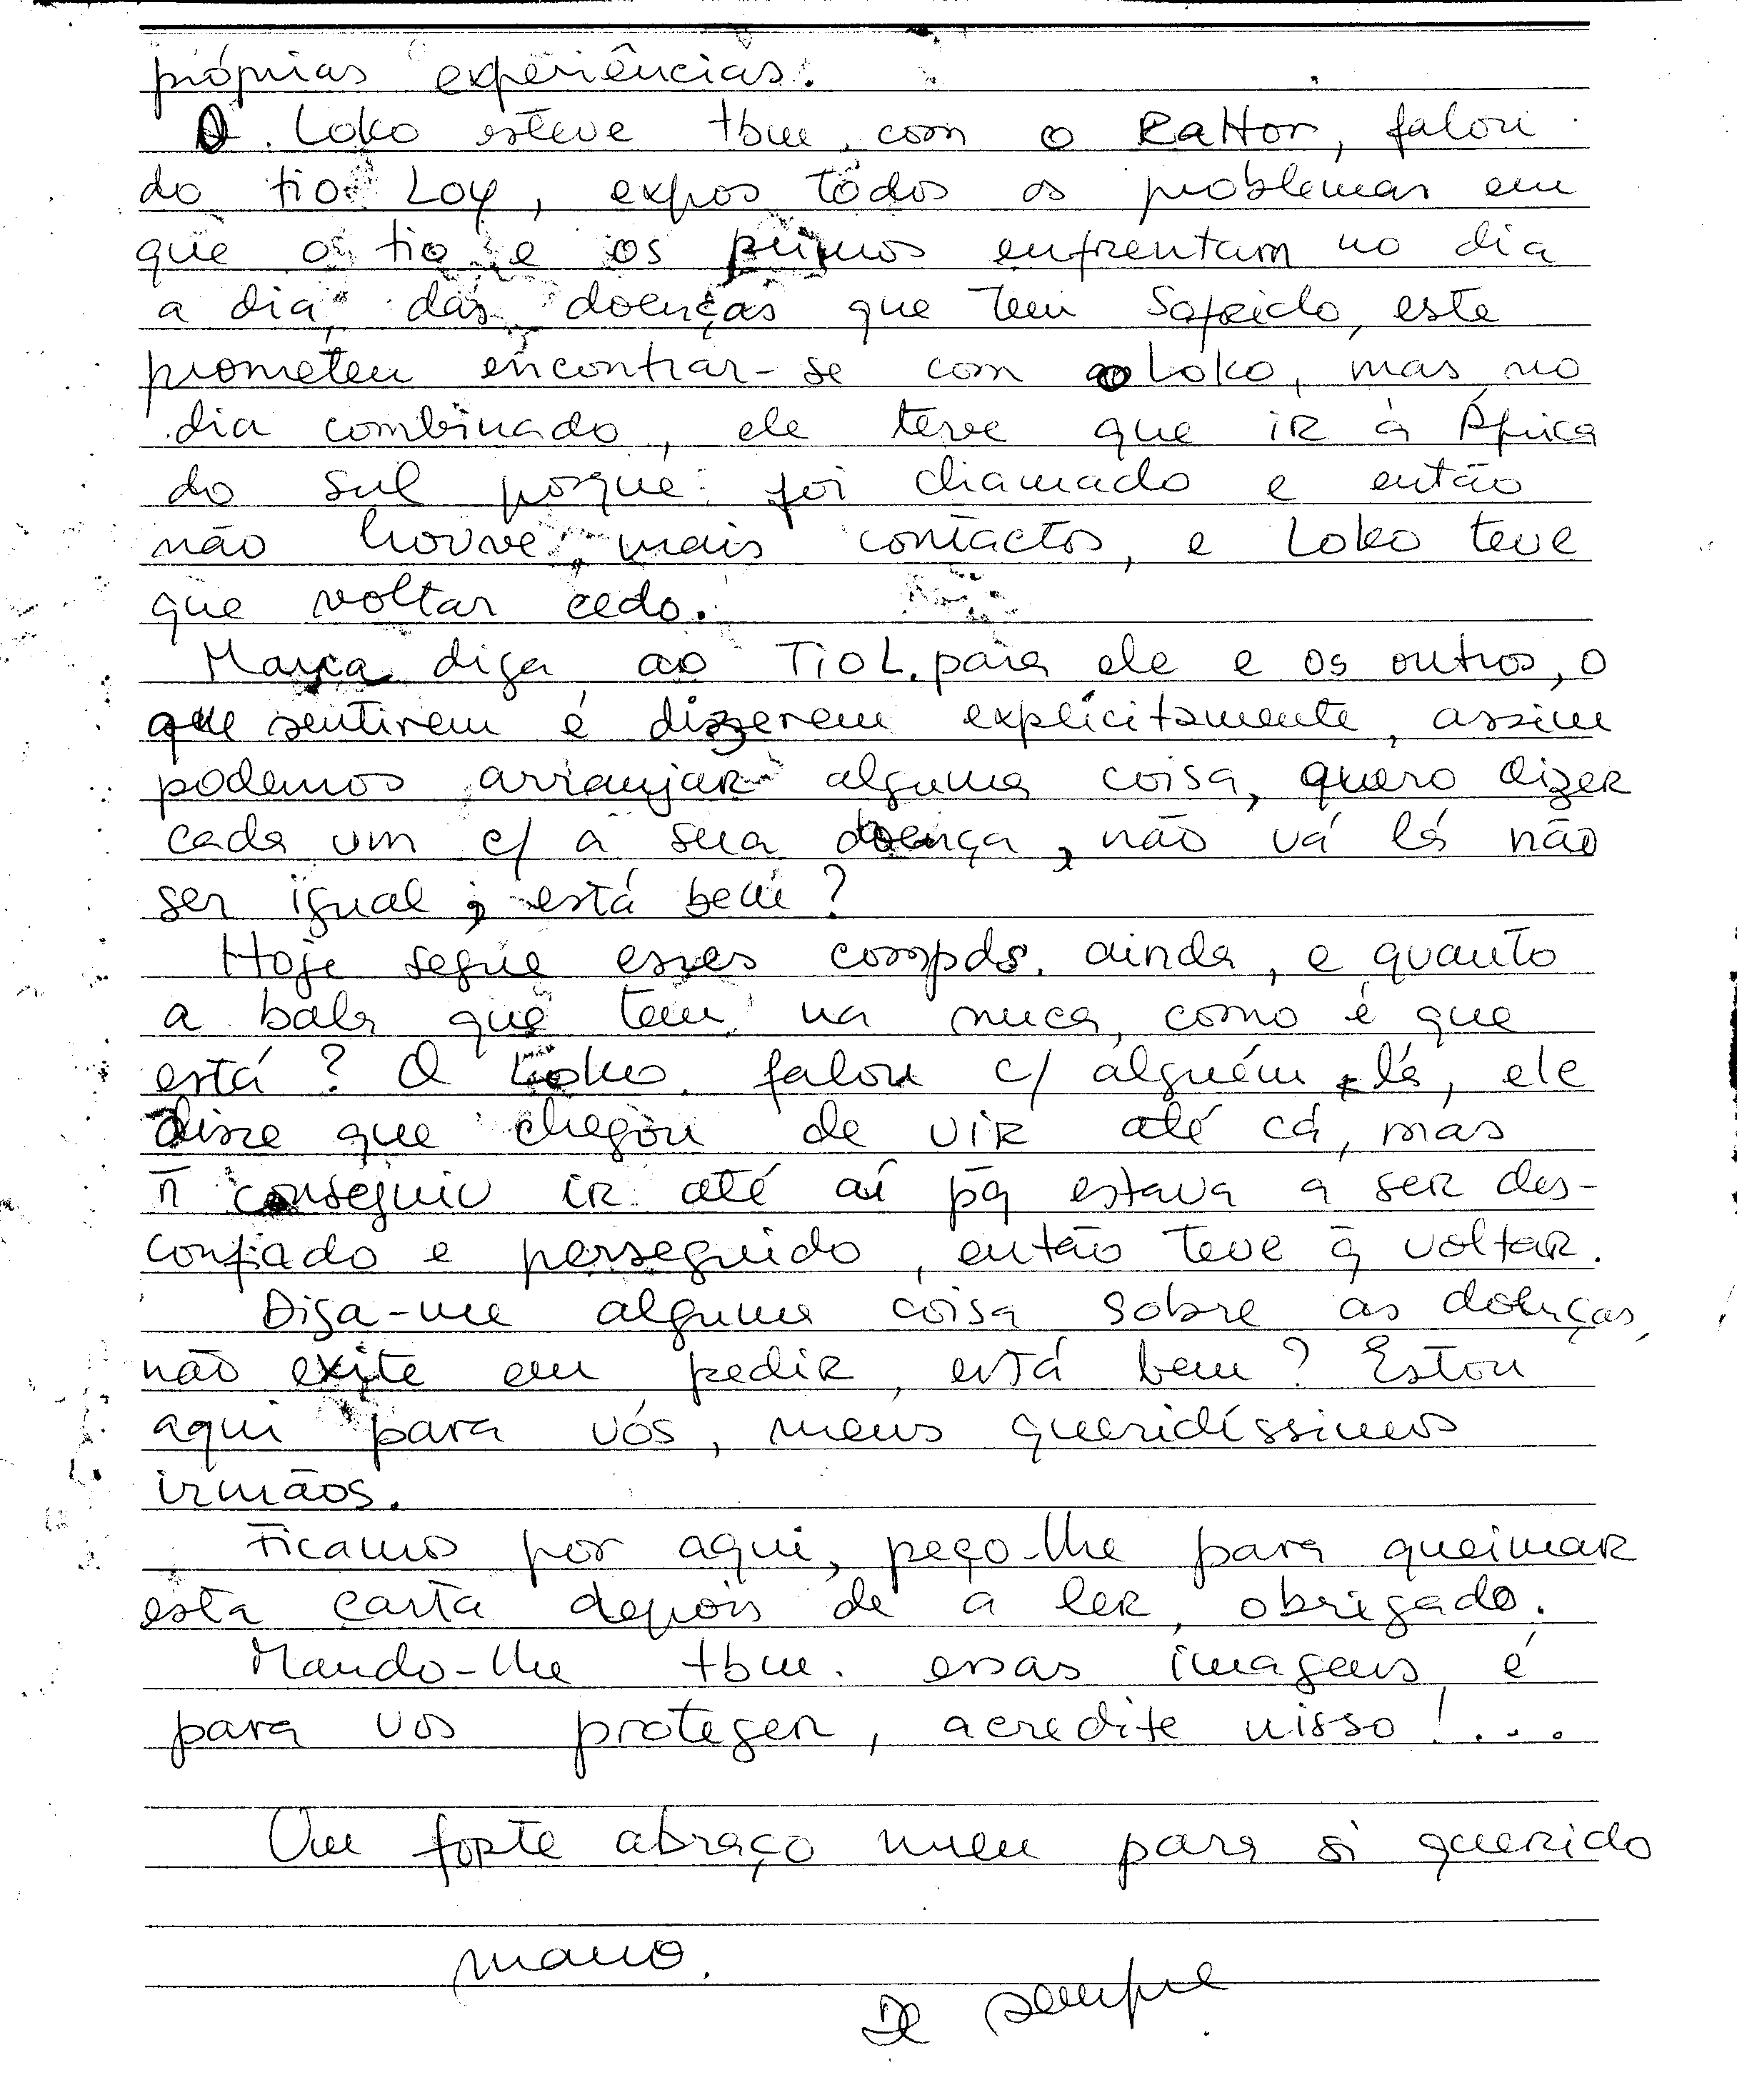 próprias experiências.
O Loko esteve tbm. com o Rattor, falou
do tio Loy, expos todos os problemas em
que o tio e os primos enfrentam no dia
a dia, das doenças que tem Sofrido, este
prometeu encontrar-se com o Loko, mas no
dia combinado, ele teve que ir à África
do Sul porque foi chamado e então
não houve mais contactos, e Loko teve
que voltar cedo.
diga ao Tio L. para ele e os outros, o
que sentirem é dizzerem explicitamente, assim
podemos arranjar alguma coisa, quero dizer
cada um c/ a sua doença, não vá lá não
ser igual, está bem?
Hoje segue esses compds. ainda, e quanto
a bala que tem na nuca, como é que
está? O Loko falou c/ alguém lá, ele
disse que chegou de vir até cá, mas
ñ conseguiu ir até aí pq estava a ser des-
confiado e perseguido, então teve q̃ voltar.
Diga-me alguma coisa sobre as doenças,
não exite em pedir, está bem? Estou
aqui para vós, meus queridíssimos
irmãos.
Ficamos por aqui, peço-lhe para queimar
esta carta depois de a ler, obrigado.
Mando-lhe tbm. essas imagens é
para vos proteger, acredite nisso!...
Um forte abraço meu para si querido
mano.
De sempre